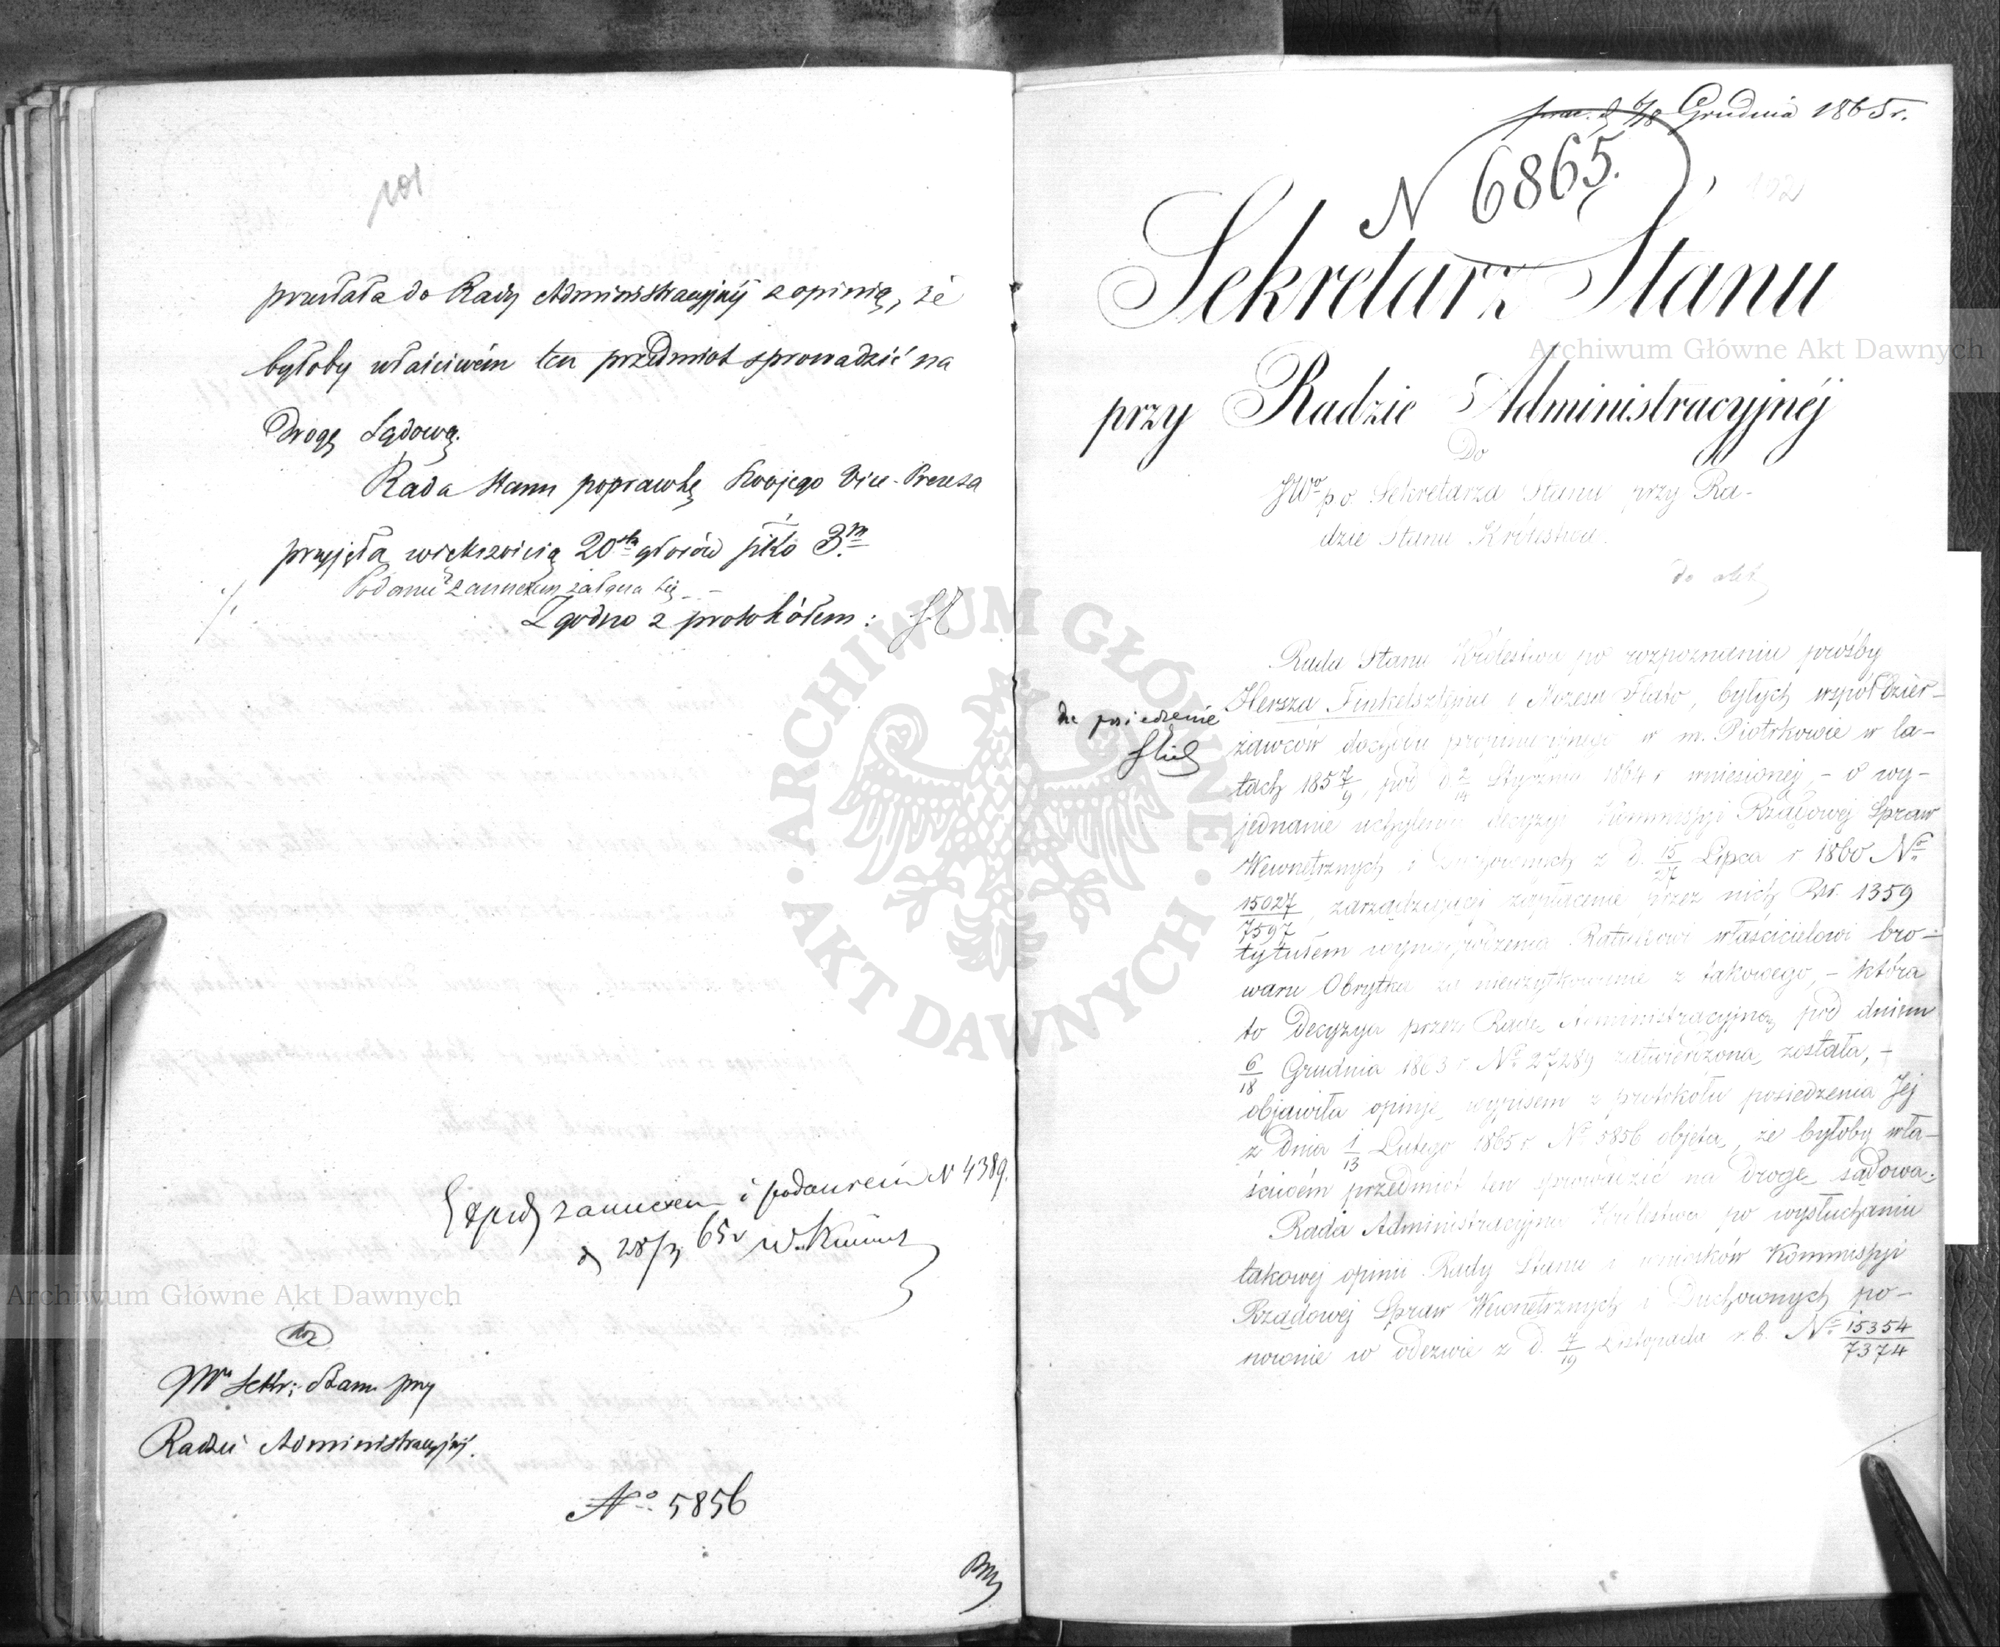 101
przesłała do Rady Administracyjnéj z opinią, że
byłoby właściwém ten przedmiot sprowadzić na
drogę Sądową.
Rada Stanu poprawkę Swojego Vice-Prezesa
przyjęła większością 20stu głosów p-ko 3m
Podanie z annexem załącza się
Zgodno z protokółem:
Exped z annexem i podaniem N 4389.
d 28/3 65r
do
JW Sekr: Stanu przy
Radzie Administracyjnéj.
No 5856
d 6/18 Grudnia 1865 r.
N 6865.
102
Sekretarz Stanu
przy Radzie Administracyjnéj
Do
JWo p.o. Sekretarza Stanu przy Ra-
dzie Stanu Królestwa.
do akt
Rada Stanu Królestwa po rozpoznaniu prośby
Hersza Finkelsztejna i Mozesa Flato, byłych współdzier-
do posiedzenia
żawców dochodu propinacyjnego w m. Piotrkowie w la-
tach 1857/9, pod d 2/14 Stycznia 1864 r. wniesionej, - o wy-
jednanie uchylenia decyzyi Kommissyi Rządowej Spraw
Wewnętrznych i Duchownych z d. 15/27 Lipca r 1860 No
15027/7597, zarządzającej zapłacenie przez nich Rsr. 1359
tytułem wynagrodzenia Ratuszowi właścicielowi bro-
waru Obrytka za nieużytkowanie z takowego, - która
to decyzya przez Radę Administracyjną pod dniem
6/18 Grudnia 1863 r. No 27289 zatwierdzona została, -
objawiła opinję, wypisem z protokółu posiedzenia Jej
z dnia 1/13 Lutego 1865 r No 5856 objętą, że byłoby wła-
ściwém przedmiot ten sprowadzić na drogę sądową.
Rada Administracyjna Królestwa po wysłuchaniu
takowej opinii Rady Stanu i wniosków Kommissyi
Rządowej Spraw Wewnętrznych i Duchownych po-
nowionie w odezwie z d. 7/19 Listopada r. b. No 15354/7374
Archiwum Główne Akt Dawnych
Archiwum Główne Akt Dawnych
ARCHIWUM GŁÓWNE · AKT DAWNYCH ·